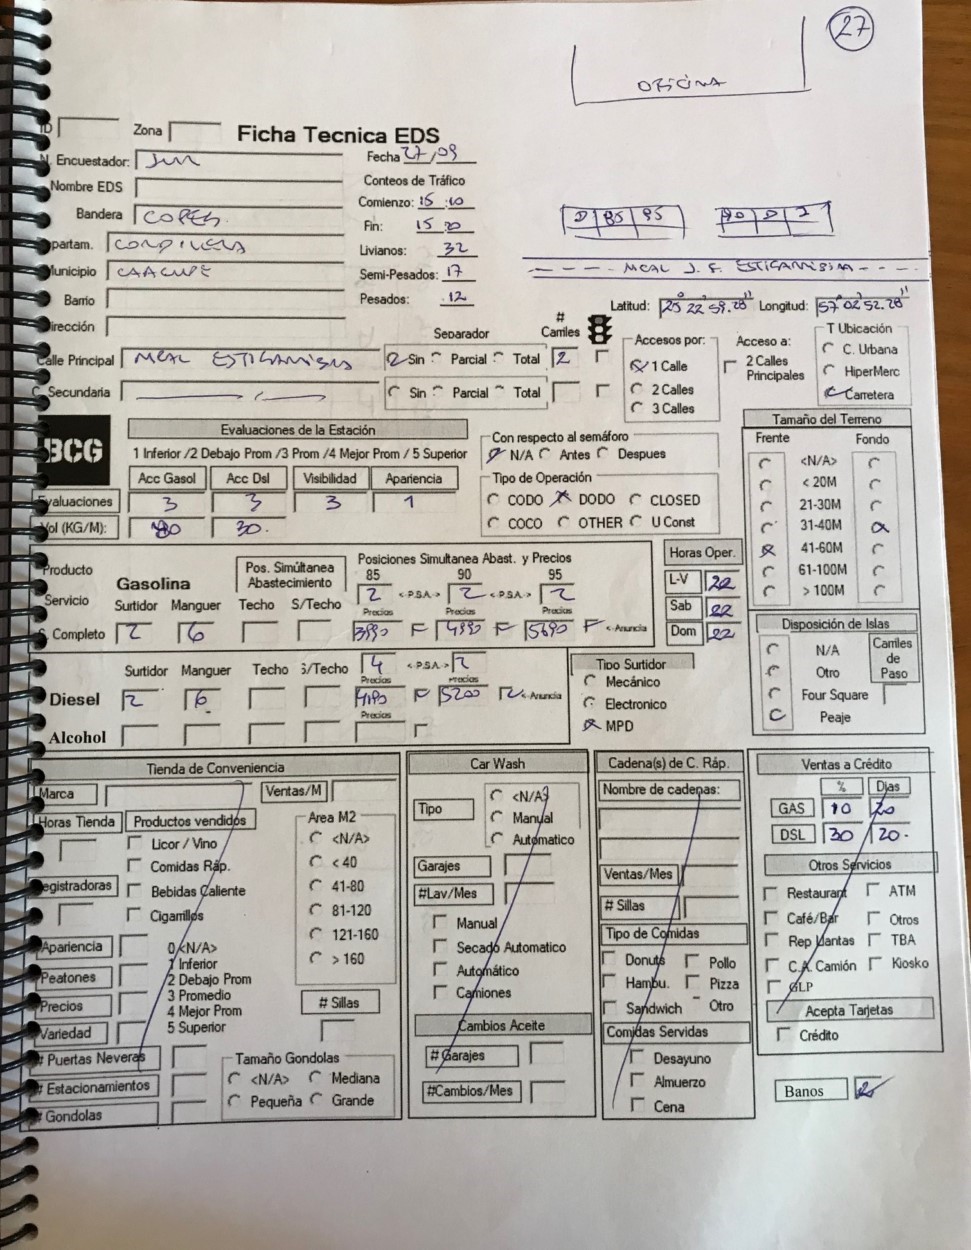 27
OFICINA
ID Zona Ficha Tecnica EDS
N. Encuestador: Fecha 27/09
Nombre EDS Conteos de Tráfico
Bandera COPEG Comienzo: 15:10
Fin: 15:20
D 85 95 90 D 2
Departam. CORDILLERA Livianos: 32
Municipio CAACUPE Semi-Pesados: 17
- - - - MCAL J. F. ESTIGARRIBIA - - - -
Barrio Pesados: 12
Latitud: 25° 22' 59.28" Longitud: 57° 02' 52.28"
Dirección
Separador # Carriles Accesos por: Acceso a: T Ubicación
Calle Principal MCAL ESTIGARRIBIA Sin Parcial Total 2 1 Calle 2 Calles Principales C. Urbana
HiperMerc
C. Secundaria Sin Parcial Total 2 Calles Carretera
3 Calles
BCG Evaluaciones de la Estación
1 Inferior /2 Debajo Prom /3 Prom /4 Mejor Prom / 5 Superior
Con respecto al semáforo
N/A Antes Despues
Acc Gasol Acc Dsl Visibilidad Apariencia
Evaluaciones 3 3 3 1
Vol (KG/M): 30
Tipo de Operación
CODO DODO CLOSED
COCO OTHER U Const
Tamaño del Terreno
Frente Fondo
<N/A>
< 20M
21-30M
31-40M
41-60M
61-100M
> 100M
Producto Servicio Gasolina Pos. Simúltanea Abastecimiento Posiciones Simultanea Abast. y Precios
85 90 95
2 <-P.S.A.-> 2 <-P.S.A.-> 2
Surtidor Manguer Techo S/Techo Precios Precios Precios
S. Completo 2 6 3990 F 4990 F 5690 F <-Anuncia
Horas Oper.
L-V 22
Sab 22
Dom 22
Disposición de Islas
N/A
Otro
Four Square
Peaje
Carriles de Paso
Surtidor Manguer Techo S/Techo 4 <-P.S.A.-> 2
Precios Precios
Diesel 2 6 4190 F 5200 <-Anuncia
Precios
Alcohol
Tipo Surtidor
Mecánico
Electronico
MPD
Tienda de Conveniencia
Marca Ventas/M
Horas Tienda Productos vendidos Area M2
Licor / Vino <N/A>
Comidas Ráp. < 40
Registradoras Bebidas Caliente 41-80
Cigarrillos 81-120
Apariencia 0 <N/A> 121-160
1 Inferior > 160
Peatones 2 Debajo Prom
Precios 3 Promedio # Sillas
4 Mejor Prom
Variedad 5 Superior
# Puertas Neveras Tamaño Gondolas
# Estacionamientos <N/A> Mediana
# Gondolas Pequeña Grande
Car Wash
Tipo <N/A>
Manual
Automatico
Garajes
#Lav/Mes
Manual
Secado Automatico
Automático
Camiones
Cambios Aceite
# Garajes
#Cambios/Mes
Cadena(s) de C. Ráp.
Nombre de cadenas:
Ventas/Mes
# Sillas
Tipo de Comidas
Donuts Pollo
Hambu. Pizza
Sandwich Otro
Comidas Servidas
Desayuno
Almuerzo
Cena
Ventas a Crédito
% Dias
GAS 10 20
DSL 30 20
Otros Servicios
Restaurant ATM
Café/Bar Otros
Rep Llantas TBA
C.A. Camión Kiosko
GLP
Acepta Tarjetas
Crédito
Banos